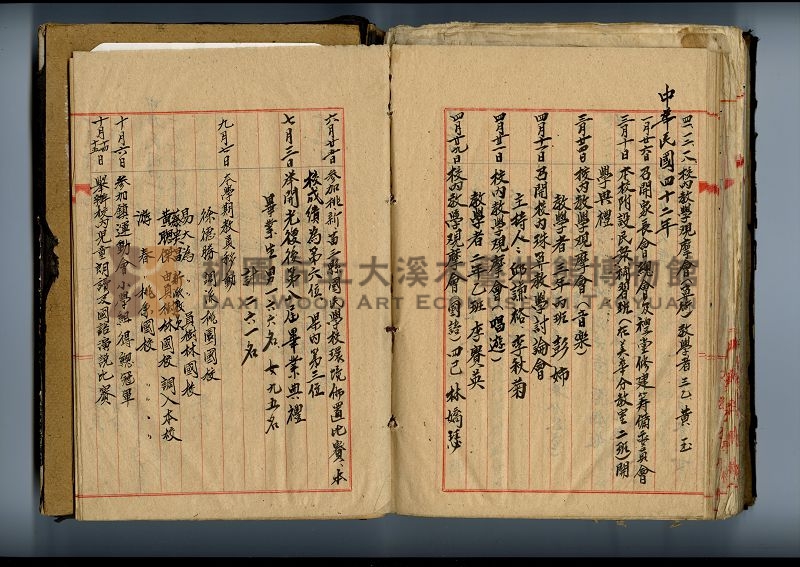 中華民國四十二年
四、二、八 校內教學觀摩會(直屬)教學者三乙 黃玉
一月廿六日 召開家長會日現會及禮堂修建籌備委員會
三月十日 本校附設民眾補習班(在美華分教室二班)開
學典禮
三月廿四日 校內教學觀摩會(音樂)
教學者 三年丙班 彭 姉
四月十一日 召開校內珠算教學討論會
主持人 邱 李秋菊
四月廿一日 校內教學觀摩會(唱遊)
教學者 二年乙班 李 英
四月廿九日 校內教學觀摩會(國語)四己 林嬌
六月廿 日 參加桃新苗三縣國民學校環境佈置比賽、本
校成績為第六位 県內第三位
七月三日 举開光復後第八屆畢業典禮
畢業生 男一六六名 女九五名
計二六一名
九月七日 本學期教員移動
徐德勝 調派桃園國校
易大為 〃員樹林國校
蔡 新派
傑 由員樹林國校 調入本校
游 春 桃 國校 〃 〃 〃
十月六日 參加鎮運動會小學組得總冠軍
十月 日 舉辦校內児童朗讀及國語演說比賽
桃園市立大溪木藝生態博物館
DAXI WOOD ART ECOMUSEUM, TAOYUAN